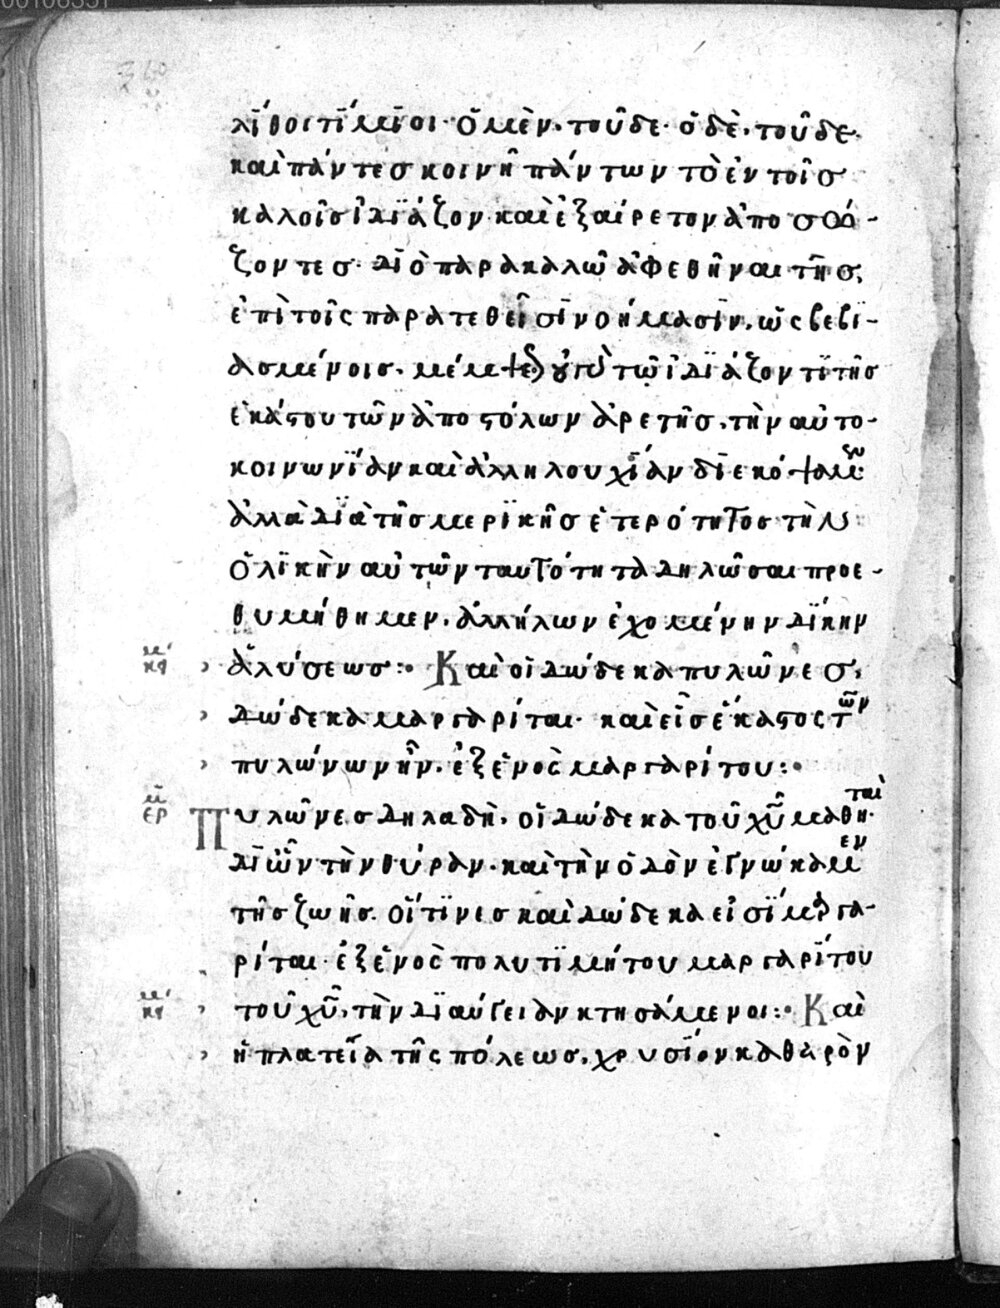 00106351
λίθοι τίμιοι· ὁ μὲν, τοῦδε· ὁ δὲ, τοῦδε·
καὶ πάντες κοινῆ πάντων τὸ ἐν τοῖς
καλοῖς ἰδιάζον καὶ ἐξαίρετον ἀποσῴ-
ζοντες· διὸ παρακαλῶ ἀφεθῆναι τῆς,
ἐπὶ τοῖς παρατεθεῖσι νοήμασιν, ὡς βεβι-
ασμένοις, μέμψε(ως) οὐ γὰρ τῶ ἰδιάζοντι τῆς
ἑκάστου τῶν ἀποστόλων ἀρετῆς, τὴν αὐτο-
κοινωνίαν καὶ ἀλληλουχίαν διεκόψαμεν
ἀλλὰ διὰ τῆς μερικῆς ἑτερότητος τὴν
ὁλικὴν αὐτῶν ταυτότητα δηλῶσαι προε-
θυμήθημεν, ἀλλήλων ἐχομένην δίκην
κμ ἁλύσεως:· Καὶ οἱ δώδεκα πυλῶνες,
δώδεκα μαργαρίται· καὶ εἷς ἕκαστος τῶν
πυλώνων ἦν, ἐξ ἑνὸς μαργαρίτου:·
ερμ Πυλῶνες δηλαδὴ, οἱ δώδεκα τοῦ χῦ μαθηταὶ·
δι' ὧν τὴν θύραν· καὶ τὴν ὁδὸν ἐγνώκαμεν
τῆς ζωῆς. οἵτινες καὶ δώδεκα εἰσὶ μαργα-
ρίται· ἐξ ἑνὸς πολυτιμήτου μαργαρίτου
κμ τοῦ χῦ, τὴν διαύγειαν κτησάμενοι:· Καὶ
ἡ πλατεῖα τῆς πόλεως, χρυσίον καθαρὸν